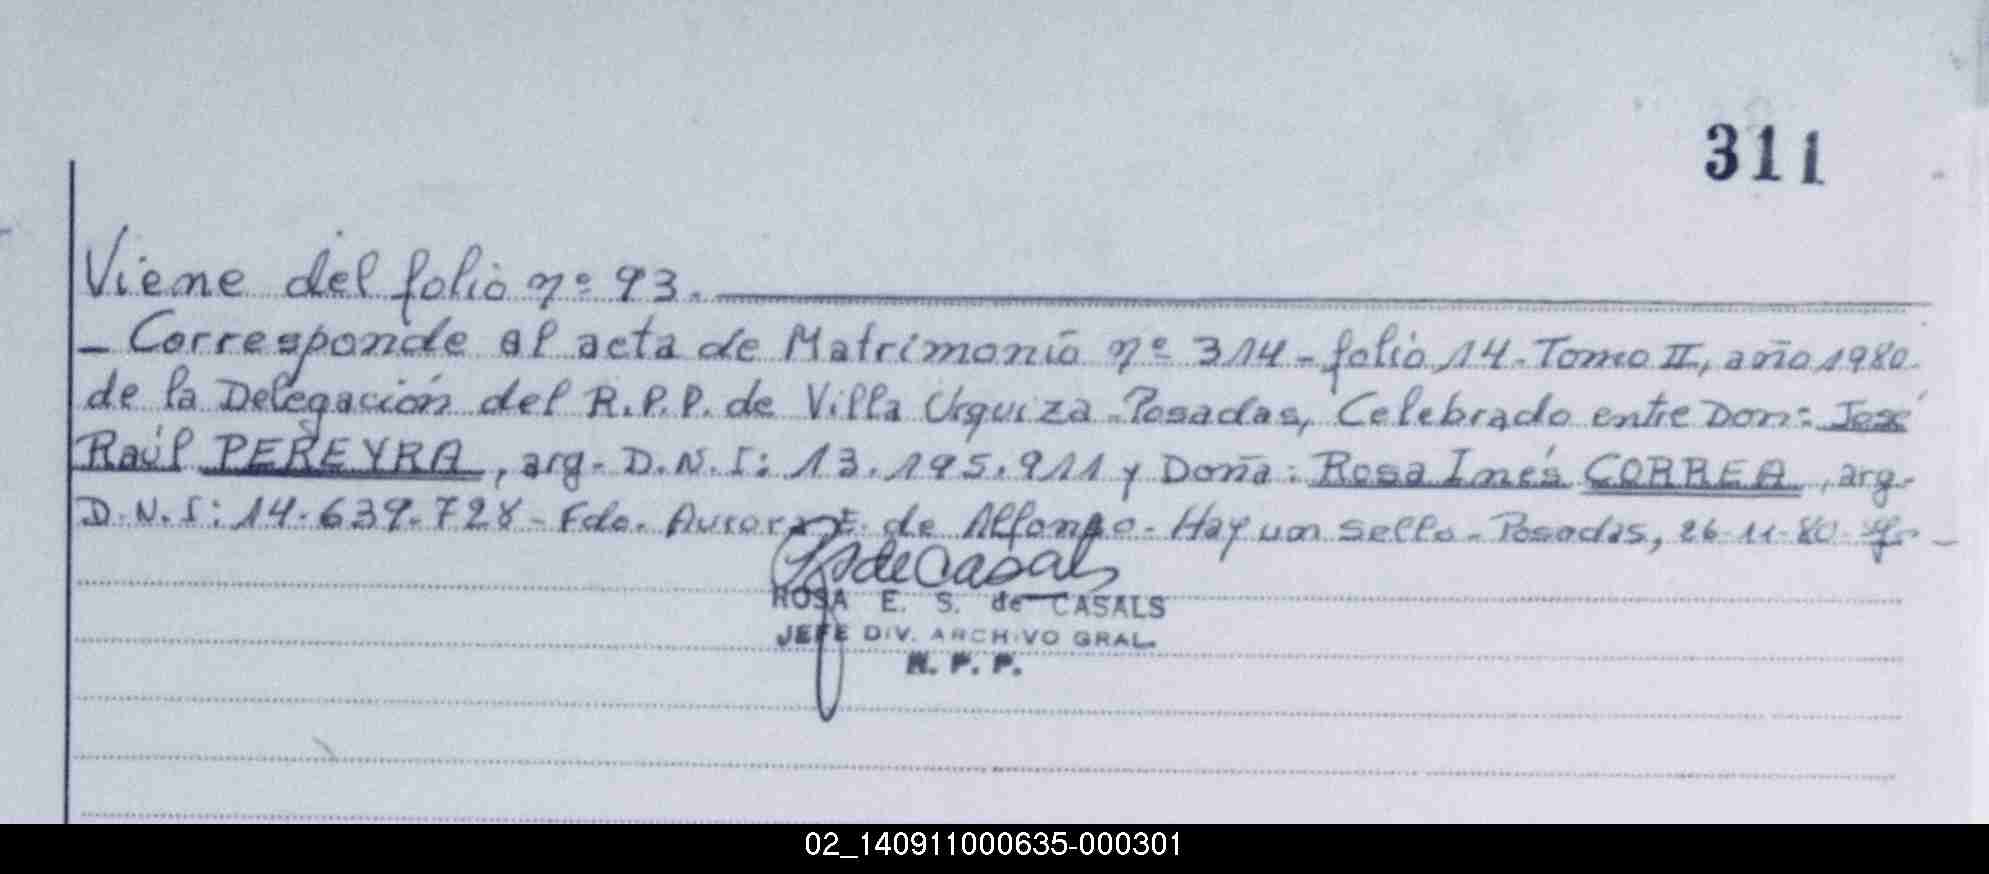 311
Viene del folio nº 93.
- Corresponde al acta de Matrimonio nº 314 - folio 14 - Tomo II, año 1980.
de la Delegación del R.P.P. de Villa Urquiza - Posadas, Celebrado entre Don: José
Raúl PEREYRA, arg - D.N.I: 13.195.911 y Doña: Rosa Inés CORREA, arg-
D.N.I: 14.639.728 - Fdo. Aurora E. de Alfonso - Hay un sello - Posadas, 26-11-80
R S de Casals
ROSA E. S. de CASALS
JEFE DIV. ARCHIVO GRAL.
R. P. P.
02_140911000635-000301